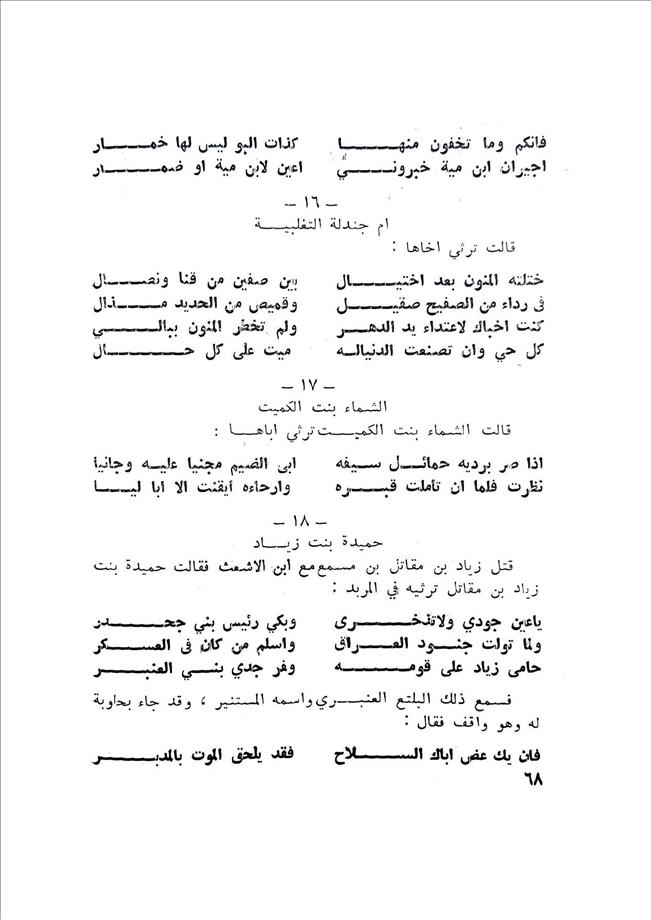 فانكم وما تخفون منهــــــا كذات البو ليس لها خمـــــار
اجيران ابن مية خبرونـــــي اعين لابن مية او ضمـــــار
— ١٦ —
ام جندلة التغلبيـــة
قالت ترثي اخاها :
ختلته المنون بعد اختيـــــال بين صفين من قنا ونصـــــال
فى رداء من الصفيح صقيـــــل وقميص من الحديد مـــــذال
كنت اخباك لاعتداء يد الدهـــــر ولم تخطر المنون ببالـــــي
كل حي وان تصنعت الدنيالـــه ميت على كل حـــــال
— ١٧ —
الشماء بنت الكميت
قالت الشماء بنت الكميـــت ترثي اباهـــا :
اذا صر برديه حمائـــل سيفه ابى الضيم مجنيا عليـــه وجانيا
نظرت فلما ان تأملت قبـــره وارحاءه أيقنت الا ابا ليـــا
— ١٨ —
حميدة بنت زيـــاد
قتل زياد بن مقاتل بن مسمع مع ابن الاشعث فقالت حميدة بنت
زياد بن مقاتل ترثيه في المربد :
ياعين جودي ولاتذخـــــرى وبكي رئيس بني جحـــــدر
ولما تولت جنـــود العـــراق واسلم من كان فى العســـكر
حامى زياد على قومـــــه وفر جدي بنـــي العنبـــــر
فسمع ذلك البلتع العنبـــري واسمه المستنير ، وقد جاء بحاوبة
له وهو واقف فقال :
فان يك عض اباك الســـــلاح فقد يلحق الموت بالمدبـــــر
٦٨